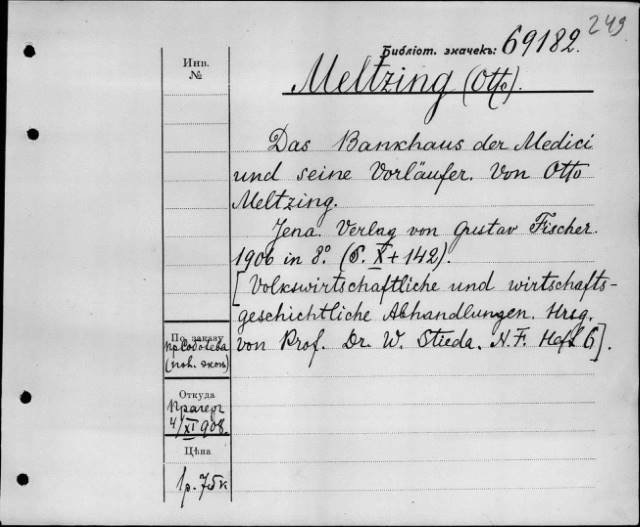 249
Библіот. значекъ: 69182.
Инв.
№
Meltzing (Otto).
Das Bankhaus der Medici
und seine Vorläufer. Von Otto
Meltzing.
Jena. Verlag von Gustav Fischer.
1906 in 8.° (S. X + 142).
[Volkswirtschaftliche und wirtschafts-
geschichtliche Abhandlungen. Hrsg.
von Prof. Dr. W. Stieda. N.F. Heft 6].
По заказу
(пол. экон)
Откуда
Прагеръ
4/XI 908.
Цѣна
1 р. 75 к